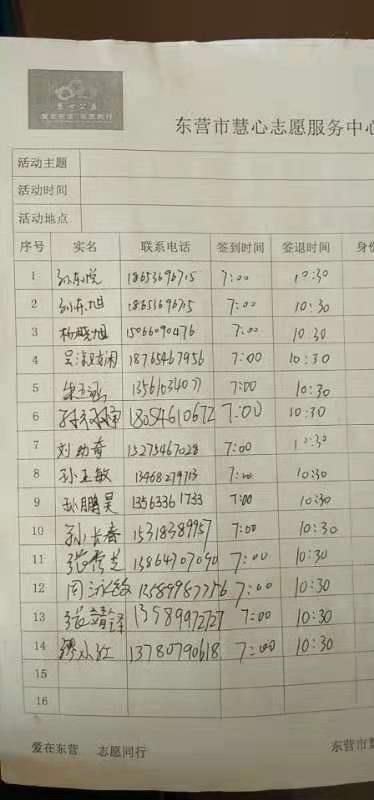 慧心公益
爱在东营 志愿同行
东营市慧心志愿服务中心
活动主题
活动时间
活动地点
序号 实名 联系电话 签到时间 签退时间 身份
1 7:00 10:30
2 7:00 10:30
3 杨晓旭 15066090476 7:00 10:30
4 18765467956 7:00 10:30
5 7:00 10:30
6 18054610672 7:00 10:30
7 15275467028 7:00 10:30
8 孙玉敏 13468279713 7:00 10:30
9 孙鹏昊 13563361733 7:00 10:30
10 孙长春 15318389957 7:00 10:30
11 张秀芝 15864707090 7:00 10:30
12 7:00 10:30
13 13989972727 7:00 10:30
14 缪小红 13780790618 7:00 10:30
15
16
爱在东营 志愿同行 东营市慧